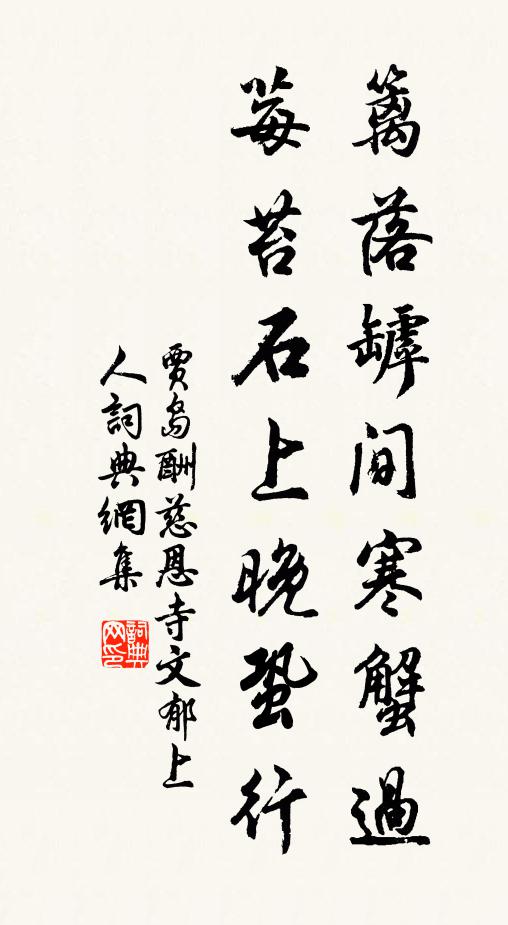 籬落罅間寒蟹過
莓苔石上晚蛩行
賈島酬慈恩寺文郁上
人詞典網集
詞典网印